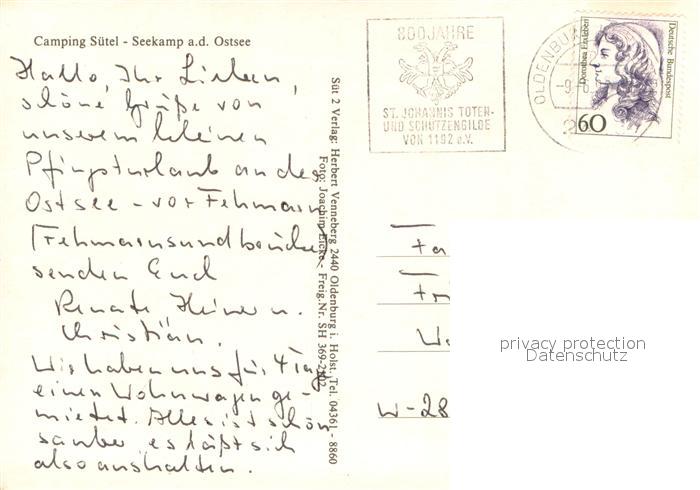 Camping Sütel - Seekamp a.d. Ostsee
Hallo, Ihr Lieben,
schöne Grüße von
unserem kleinen
Pfingsturlaub an der
Ostsee - vor Fehmarn
(Fehmarnsundbrücke
senden Euch
Renate Heiner u.
Christian.
Wir haben uns für 4 Tag
einen Wohnwagen ge-
mietet. Alles ist schön
sauber es läßt sich
also aushalten.
Süt 2 Verlag: Herbert Venneberg 2440 Oldenburg i. Holst. Tel. 04361 - 8860
Foto: Joachim Eicke - Freig.Nr. SH 369-2102
800 JAHRE
ST. JOHANNIS TOTEN-
UND SCHÜTZENGILDE
VON 1192 e.V.
OLDENBU
-9.-6.
2
Dorothea Erxleben
Deutsche Bundespost
60
Fa
Fri
We
W-28
privacy protection
Datenschutz